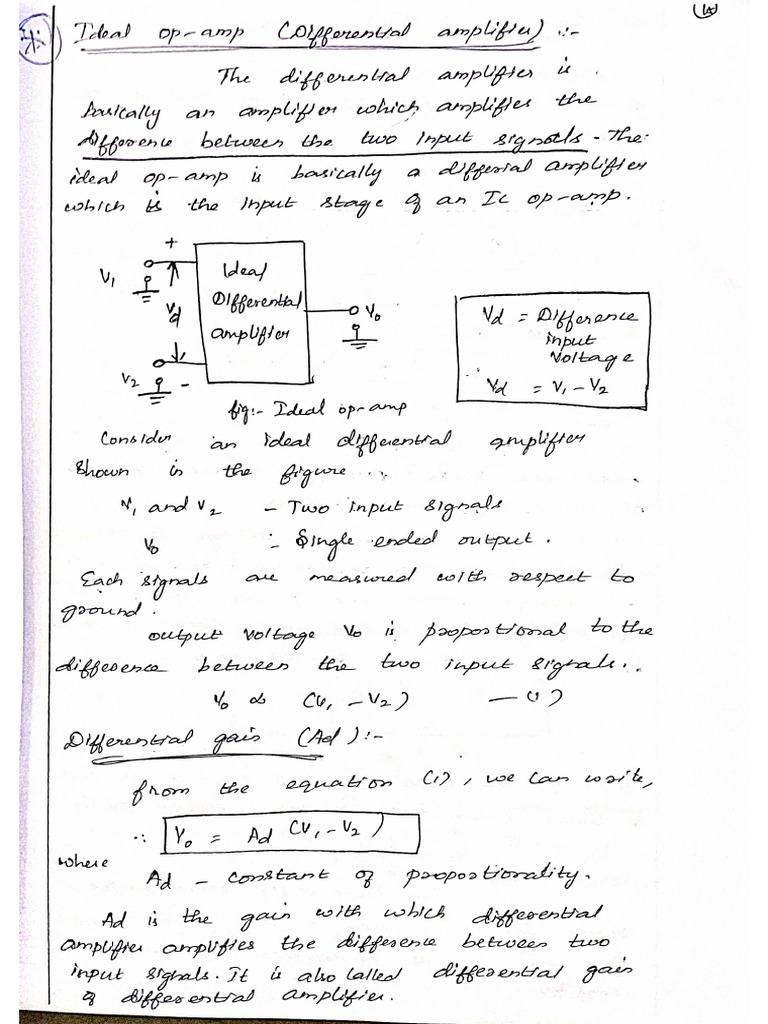 Ideal op-amp (Differential amplifier) :-
The differential amplifier is
basically an amplifier which amplifies the
difference between the two input signals - The
ideal op-amp is basically a differial amplifier
which is the input stage of an Ic op-amp.
+
V1
Vd
V2
-
Ideal
Differential
amplifier
Vo
Vd = Difference
input
Voltage
Vd = V1 - V2
fig:- Ideal op-amp
Consider an ideal differential amplifier
shown in the figure...
V1 and V2 - Two input signals
Vo :- Single ended output.
Each signals are measured with respect to
ground.
output voltage Vo is proportional to the
difference between the two input signals..
Vo ∝ (V1 - V2) — (1)
Differential gain (Ad) :-
from the equation (1), we can write,
∴ Vo = Ad (V1 - V2)
where
Ad - constant of proportionality.
Ad is the gain with which differential
amplifier amplifies the difference between two
input signals. It is also called differential gain
of differential amplifier.